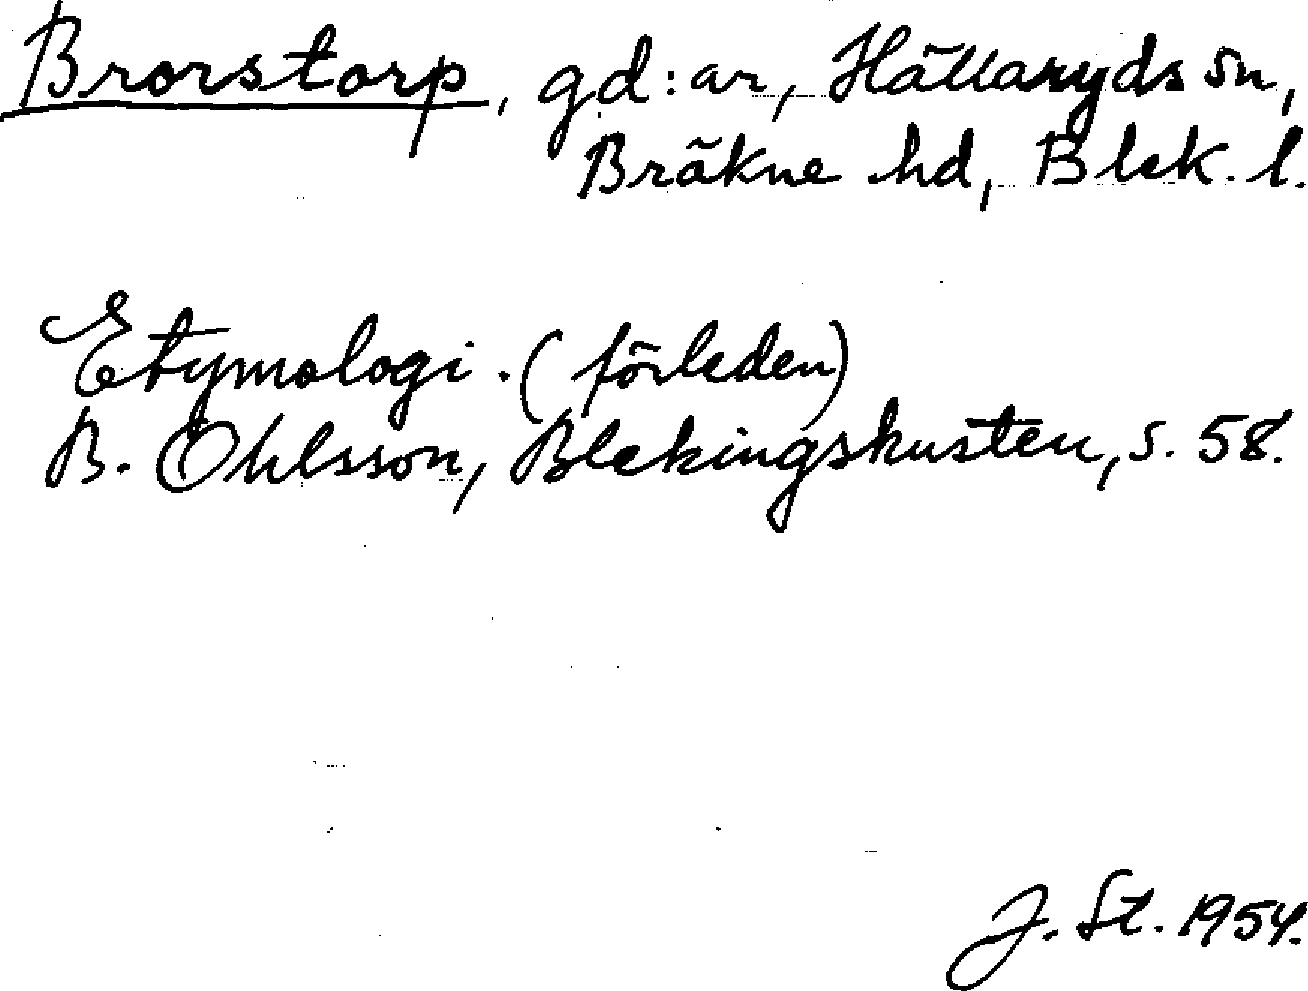 Brorstorp, gd:ar, Hällaryds sn,
Bräkne hd, Blek. l.
Etymologi. (förleden)
B. Ohlsson, Blekingskusten, s. 58.
J. St. 1954.